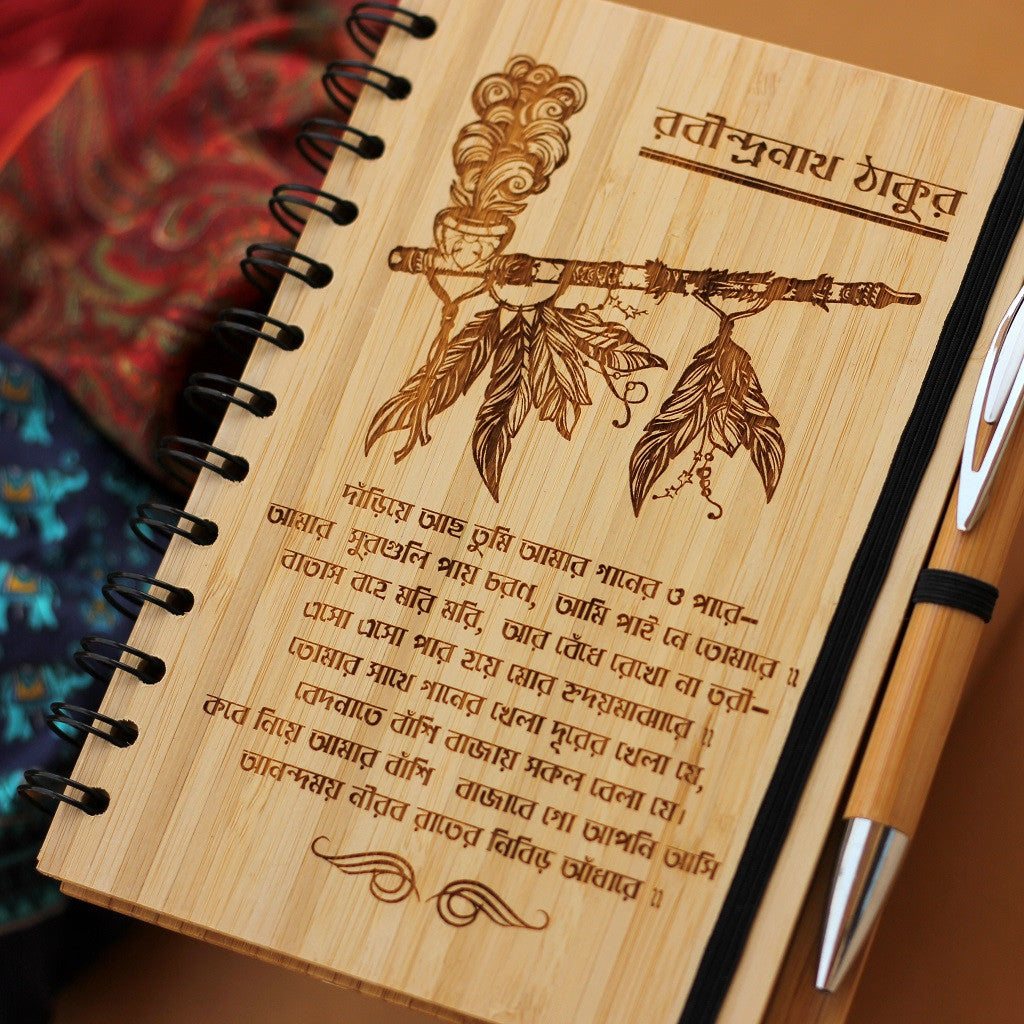 রবীন্দ্রনাথ ঠাকুর
দাঁড়িয়ে আছ তুমি আমার গানের ও পারে—
আমার সুরগুলি পায় চরণ, আমি পাই নে তোমারে ॥
বাতাস বহে মরি মরি, আর বেঁধে রেখো না তরী—
এসো এসো পার হয়ে মোর হৃদয়মাঝারে ॥
তোমার সাথে গানের খেলা দূরের খেলা যে,
বেদনাতে বাঁশি বাজায় সকল বেলা যে।
কবে নিয়ে আমার বাঁশি বাজাবে গো আপনি আসি
আনন্দময় নীরব রাতের নিবিড় আঁধারে ॥